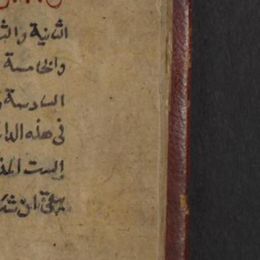 الثانية والثا
والخامسة
السادسة و
في هذه الدا
الست المذ
ان شئ